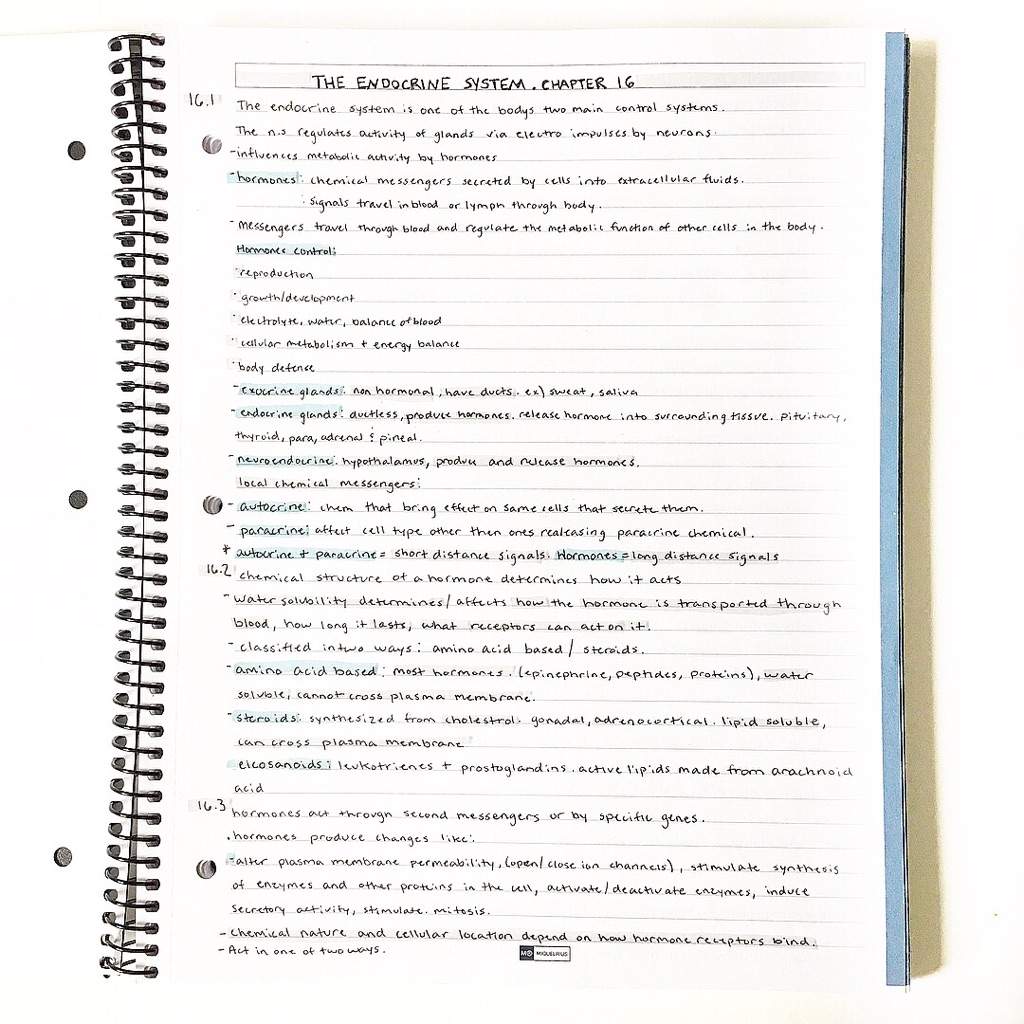 THE ENDOCRINE SYSTEM. CHAPTER 16
16.1 The endocrine system is one of the bodys two main control systems.
The n.s regulates activity of glands via electro impulses by neurons.
-influences metabolic activity by hormones
-hormones: chemical messengers secreted by cells into extracellular fluids.
: signals travel in blood or lymph through body.
-messengers travel through blood and regulate the metabolic function of other cells in the body.
Hormones control:
·reproduction
·growth/development
·electrolyte, water, balance of blood
·cellular metabolism + energy balance
·body defense
-exocrine glands: non hormonal, have ducts. ex) sweat, saliva
-endocrine glands: ductless, produce hormones. release hormone into surrounding tissue. pituitary,
thyroid, para, adrenal & pineal.
-neuroendocrine: hypothalamus, produce and release hormones.
local chemical messengers:
- autocrine: chem that bring effect on same cells that secrete them.
- paracrine: affect cell type other then ones realeasing paracrine chemical.
* autocrine + paracrine = short distance signals. Hormones = long distance signals
16.2 chemical structure of a hormone determines how it acts
-water solubility determines/affects how the hormone is transported through
blood, how long it lasts, what receptors can act on it.
-classified in two ways: amino acid based / steroids.
-amino acid based: most hormones. (epinephrine, peptides, proteins), water
soluble, cannot cross plasma membrane.
-steroids: synthesized from cholestrol. gonadal, adrenocortical. lipid soluble,
can cross plasma membrane
eicosanoids: leukotrienes + prostoglandins. active lipids made from arachnoid
acid
16.3 hormones act through second messengers or by specific genes.
·hormones produce changes like:
-alter plasma membrane permeability, (open/close ion channels), stimulate synthesis
of enzymes and other proteins in the cell, activate/deactivate enzymes, induce
secretory activity, stimulate mitosis.
-chemical nature and cellular location depend on how hormone receptors bind.
-Act in one of two ways.
MIQUELRIUS